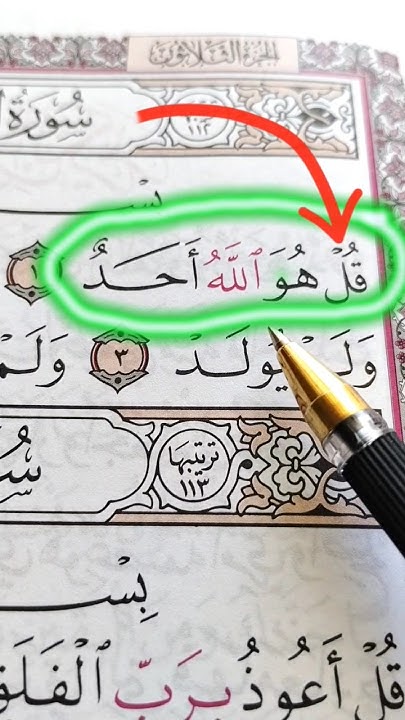 الجزء الثلاثون
سُورَةُ
١١٢
بِسْـ
قُلْ هُوَ ٱللَّهُ أَحَدٌ ١
وَلَمْ يُولَدْ ٣ وَلَمْ
ترتيبها
١١٣
بِسْـ
قُلْ أَعُوذُ بِرَبِّ ٱلْفَلَقِ